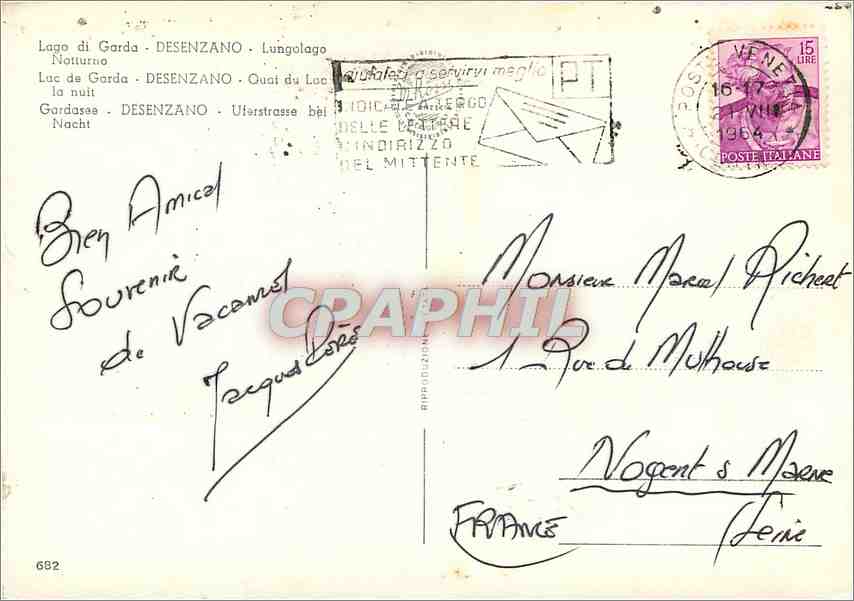 Lago di Garda - DESENZANO - Lungolago
Notturno
Lac de Garda - DESENZANO - Quai du Lac
la nuit
Gardasee - DESENZANO - Uferstrasse bei
Nacht
aiutateci a servirvi meglio
PT
INDICATE A TERGO
DELLE LETTERE
L'INDIRIZZO
DEL MITTENTE
POSTE VENEZIA
16-17
VIII
1964
15
LIRE
POSTE ITALIANE
Bien Amical
Souvenir
de Vacances
Jacques
CPAPHIL
RIPRODUZIONE
Monsieur Marcel Richert
1 Rue de Mulhouse
Nogent s Marne
(Seine
FRANCE
682